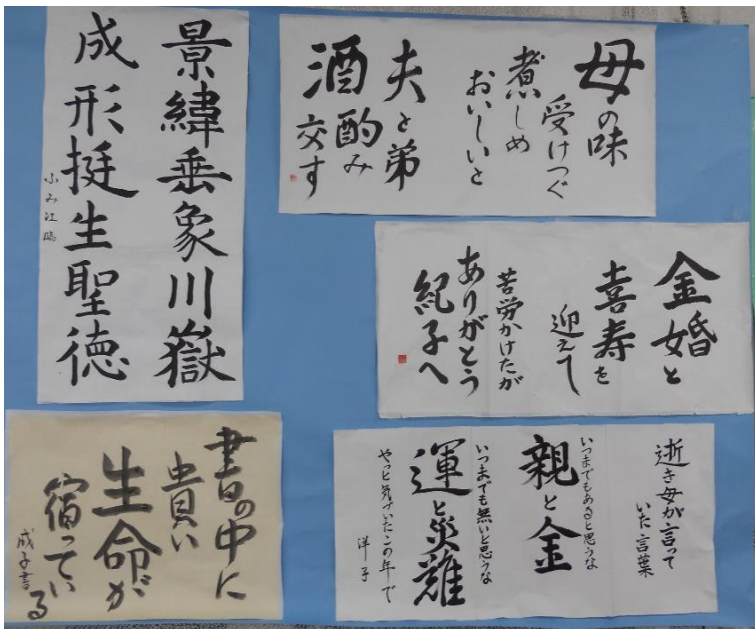 景緯垂象川嶽
成形挺生聖徳
ふみ江臨
母の味
受けつぐ
煮しめ
おいしいと
夫と弟
酒酌み
交す
金婚と
喜寿を
迎えて
苦労かけたが
ありがとう
紀子へ
書の中に
貴い
生命が
宿っている
成子書
逝き母が言って
いた言葉
いつまでもあると思うな
親と金
いつまでも無いと思うな
運と災難
やっと気づいたこの年で
洋子